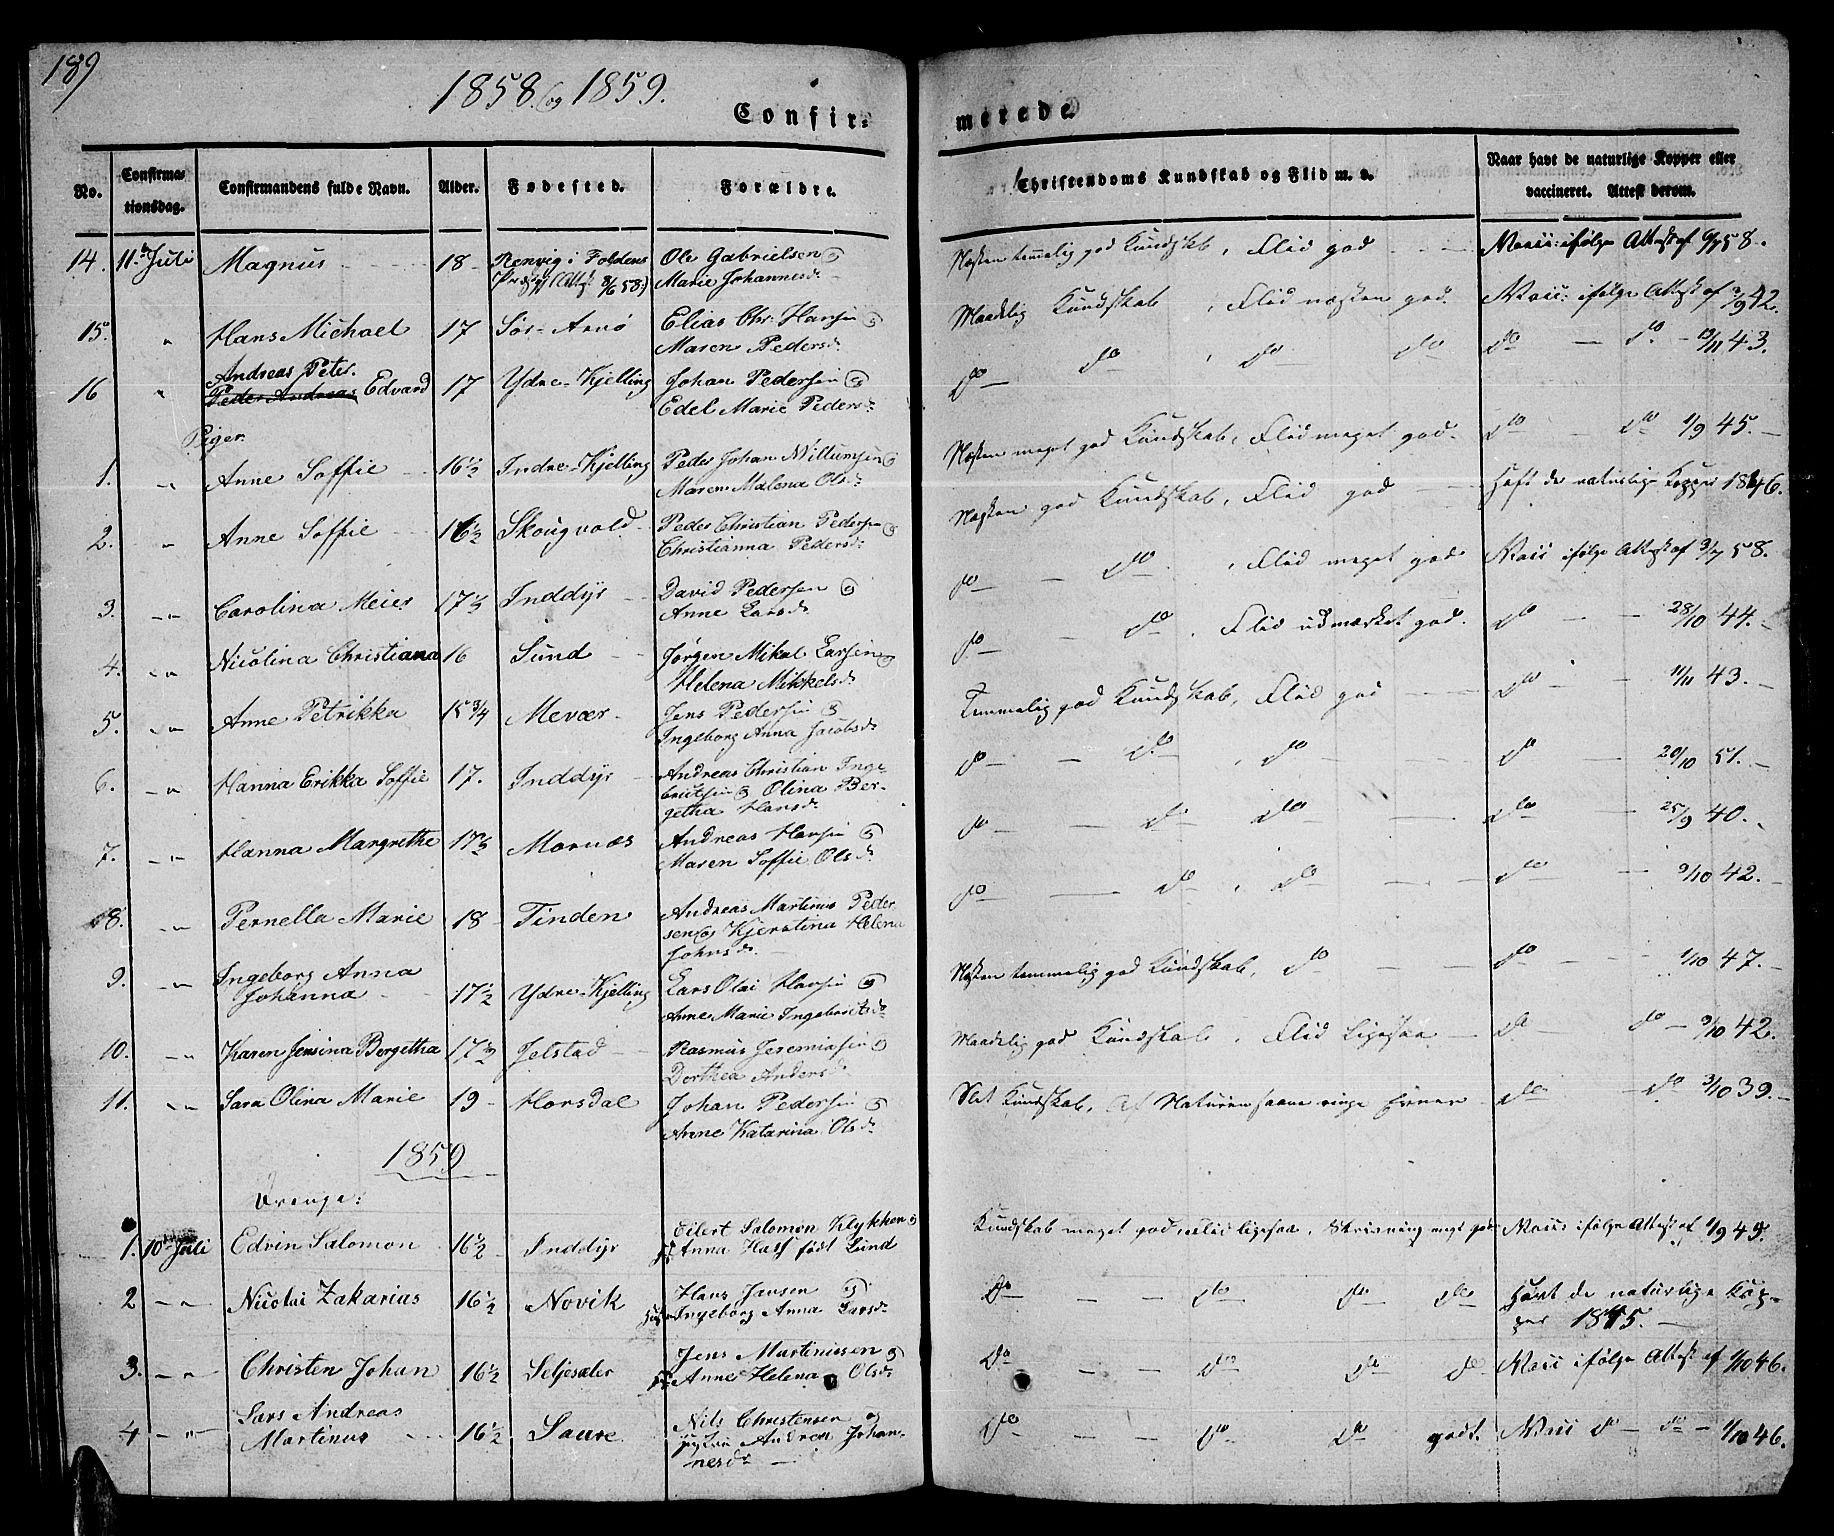 189
1858 og 1859.
Confir- merede
No. Confirmationsdag. Confirmandens fulde Navn. Alder. Fødested. Forældre. Christendoms Kundskab og Flid m. v. Naar havt de naturlige Kopper eller vaccineret. Attest derom.
14. 11 Juli Magnus 18 Renvig i Foldens Ole Gabrielsen og Næsten temmelig god Kundskab, Flid god Vacc: ifølge Attest af
Marie Johannesd.
15. " Hans Michael 17 Sør-Arnø Elias Chr. Hansen og Maadelig Kundskab, Flid næsten god. Vacc: ifølge Attest af 42.
Maren Pedersd.
16 " Andreas Peter
Peder Andreas Edvard 17 Ydre-Kjelling Johan Pedersen og do do do do do do 43.
Edel Marie Pedersd.
Piger.
1. " Anne Soffie 16½ Indre-Kjelling Peder Johan Willumsen og Næsten meget god Kundskab, Flid meget god do do 1/9 45.
Maren Malena Olsd.
2. " Anne Soffie 16½ Skougvold Peder Christian Pedersen og Næsten god Kundskab, Flid god Haft de naturlige Kopper 1846.
Christianna Pedersd.
3. " Carolina Meier Inddyr David Pedersen og do do, Flid meget god Vacc ifølge Attest af 3/7 58.
Anne Larsd.
4. " Nicolina Christiana 16 Sund Jørgen Mikal Larsen og do do, Flid udmærket god. do 28/10 44.
Helena Mikkelsd.
5. " Anne Petrikka 15¾ Mevær Jens Pedersen og Temmelig god Kundskab, Flid god do 11/11 43.
Ingeborg Anna Jacobsd.
6. " Hanna Erikka Soffie 17. Inddyr Andreas Christian Inge- do do, do do 20/10 51.
britsen og Olina Ber-
getha Hansd.
7. " Hanna Margrethe Mornæs Andreas Hansen og do do do do 25/9 40.
Maren Soffie Olsd.
8. " Pernella Marie 18 Tinden Andreas Martinus Peder- do do, do do 9/10 42.
sen og Kjerstina Helena
Johnsd.
9. " Ingeborg Anna
Johanna 17½ Ydre-Kjelling Lars Olai Hansen og Næsten temmelig god Kundskab, do do 1/10 47.
Anne Marie Ingebritsd.
10. " Karen Jensina Bergetha Jelstad Rasmus Jeremiasen og Maadelig god Kundskab, Flid ligesaa do do 9/10 42.
Dorthea Andersd.
11. " Sara Olina Marie 19 Horsdal Johan Pedersen og Slet Kundskab, Af Naturen saare ringe Evner do do 3/10 39.
Anne Katarina Olsd.
1859
Drenge:
1. 10 Juli Edvin Salomon 16½ Inddyr Eilert Salomon Klykken og Kundskab meget god, Flid ligesaa, Skrivning Vacc: ifølge Attest af 1/9 45.
Anna Hass født Lund
2 " Nicolai Zakarias 16½ Novik Hans Jansen og do do do do Havt de naturlige Kop-
Ingeborg Anna Larsd. per 1845.
3. " Christen Johan 16½ Seljesæter Jens Martinussen og do do do do Vacc ifølge Attest af 1/10 46.
Anne Helena Olsd.
4 " Lars Andreas
Martinus 16½ Saure Nils Christensen og do do do godt. Vacc do do 1/10 46.
Andrea Johan-
nesd.